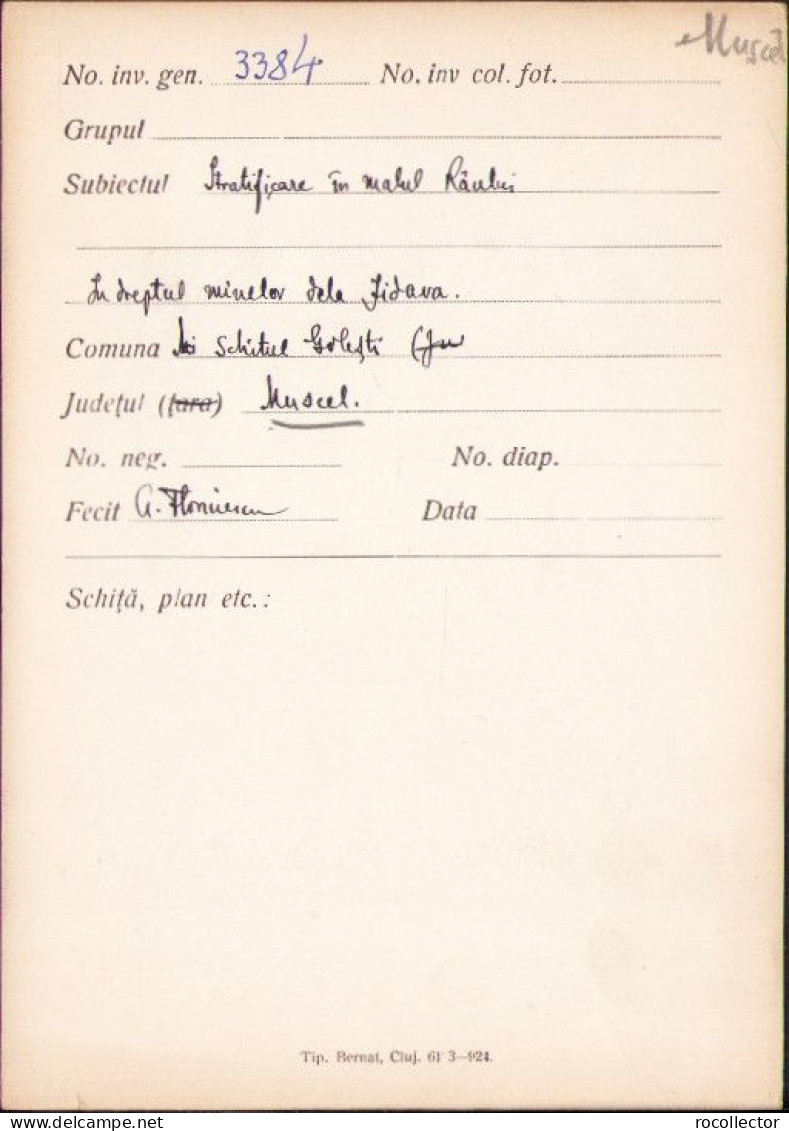 Muscel
No. inv. gen. 3384 No. inv col. fot.
Grupul
Subiectul Stratificare în malul Râului
În dreptul minelor dela Jidava.
Comuna Schitul Golești
Județul (țara) Muscel.
No. neg. No. diap.
Fecit G. Data
Schiță, plan etc.:
Tip. Bernat, Cluj. 61 3—924.
rocollector
delcampe.net